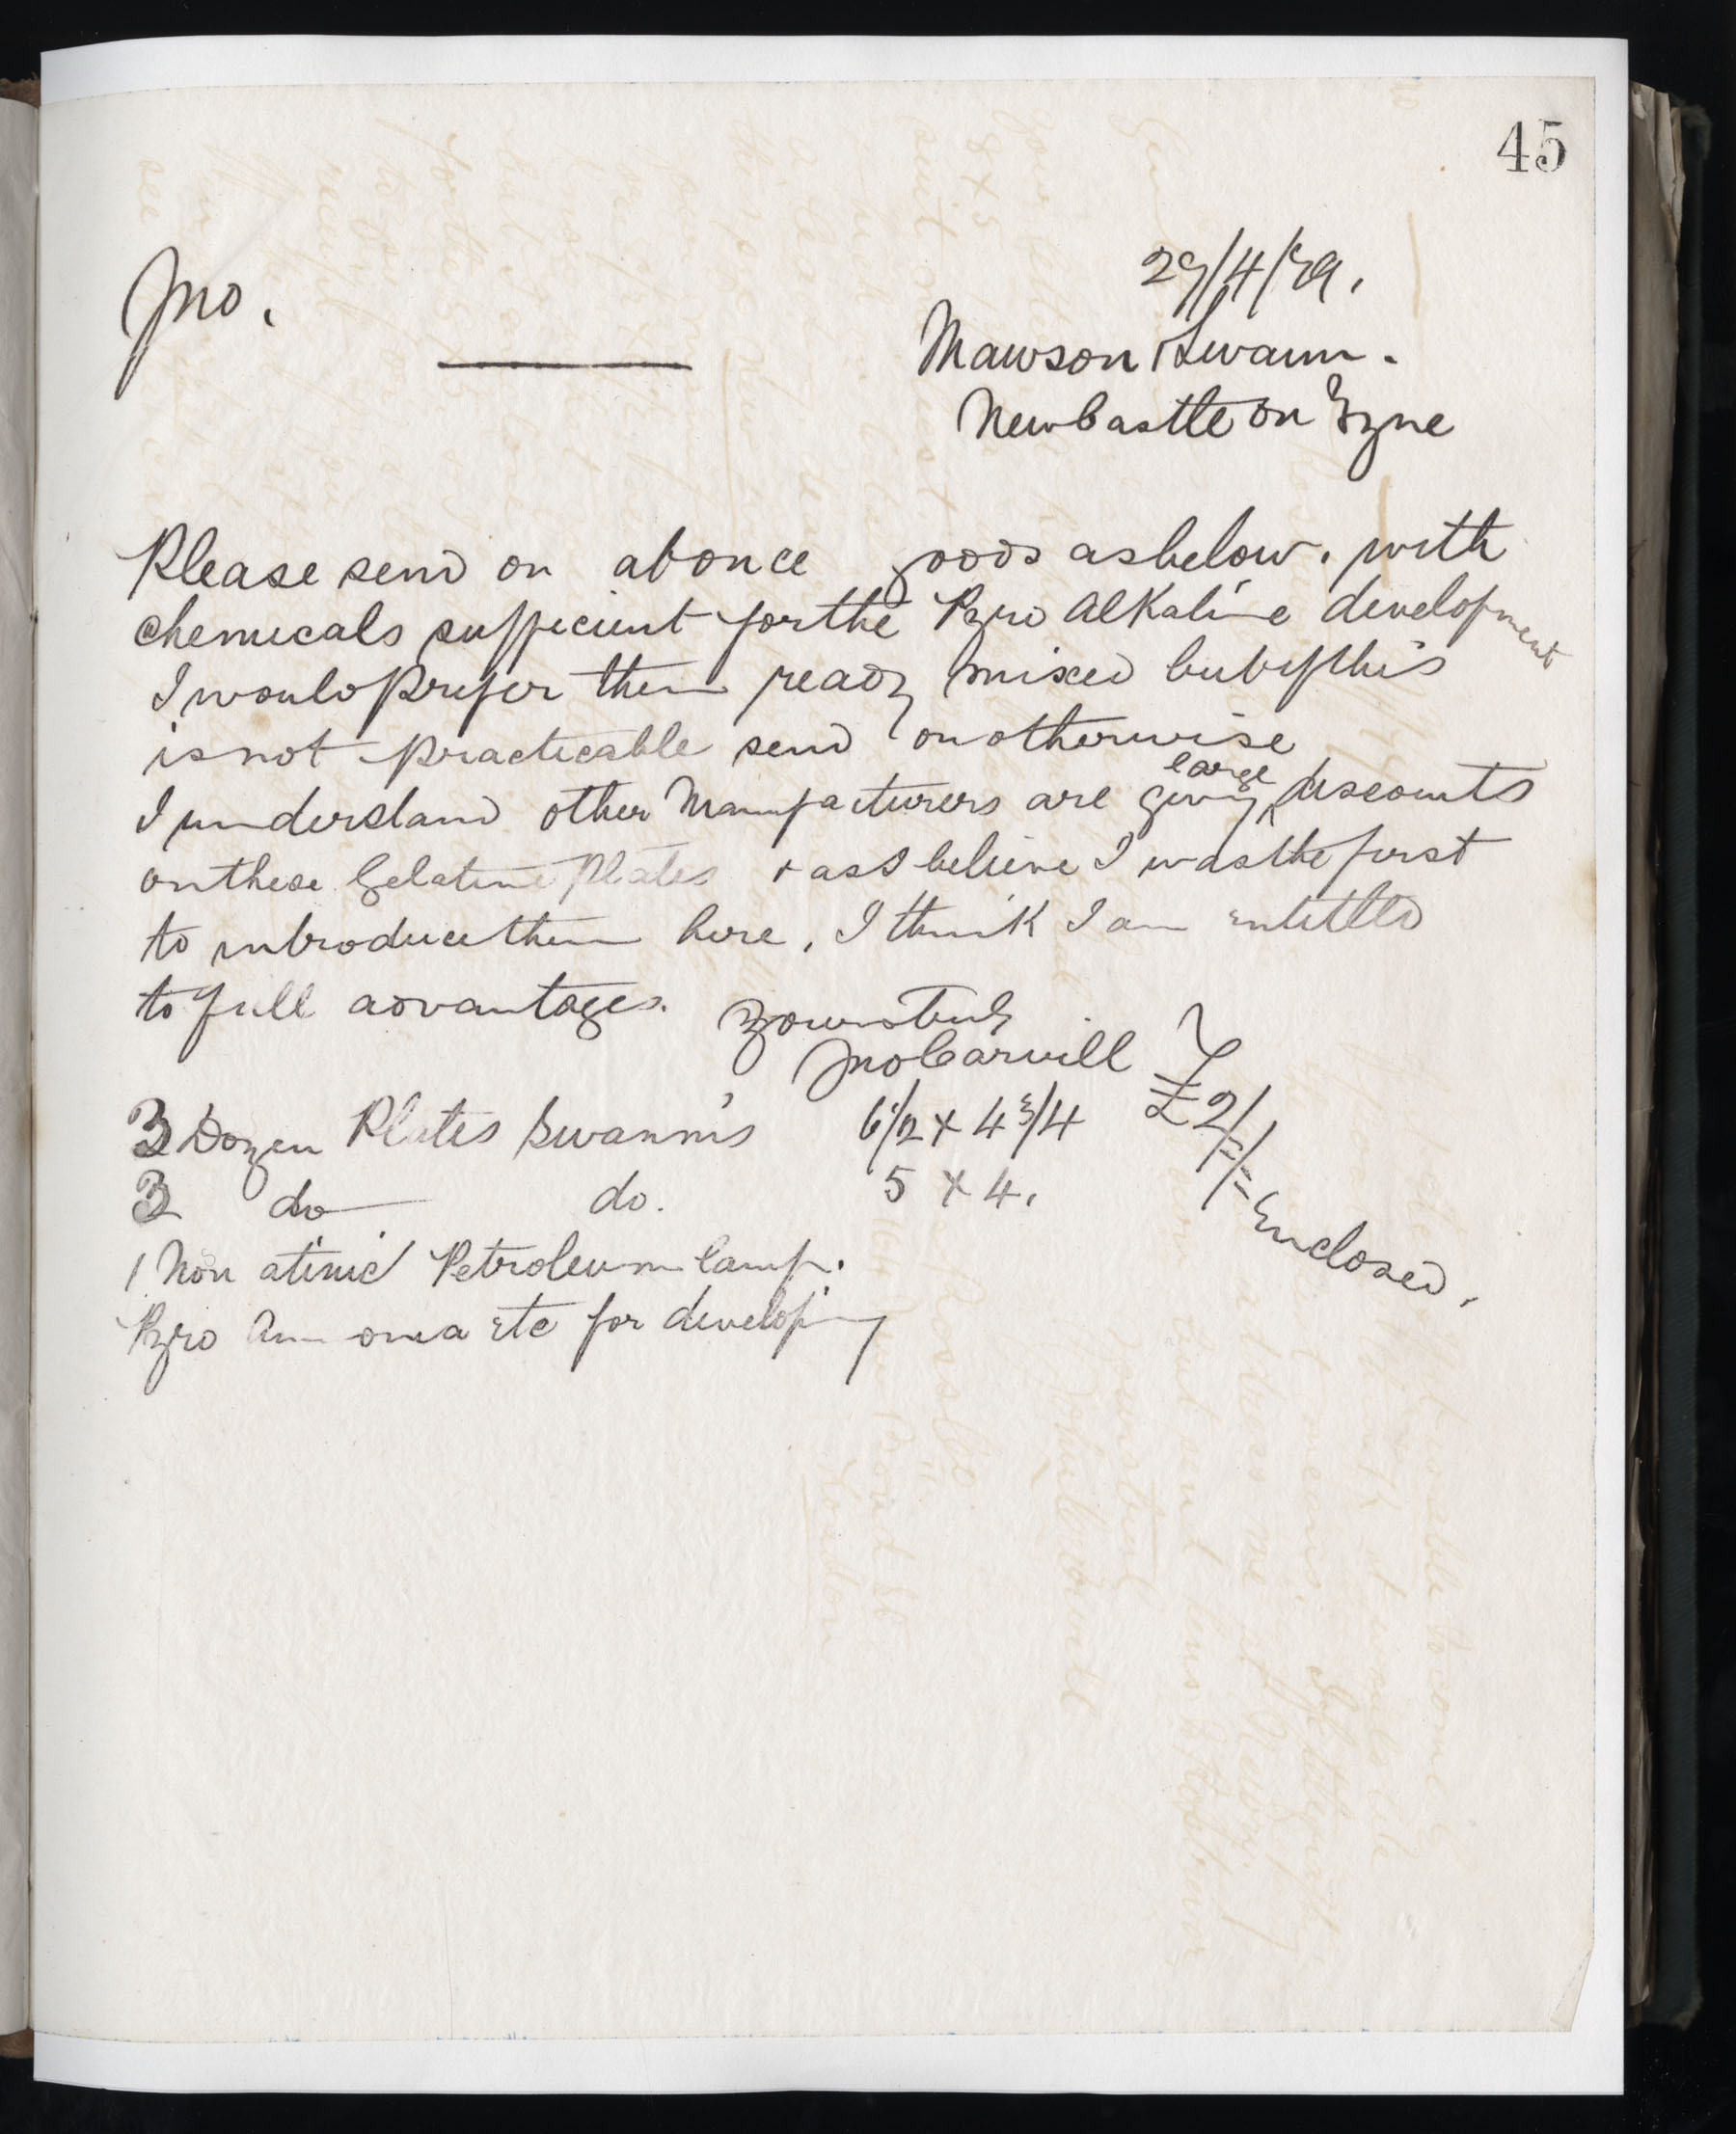 45
29/4/79.
Jno.
Mawson & Swann.
NewCastle on Tyne
Please send on at once goods as below. with
chemicals sufficient for the Pyro Alkaline development
I would prefer them ready mixed but if this
is not practicable send on otherwise
I understand other Manufacturers are giving large discounts
on these Gelatine Plates + as I believe I was the first
to introduce them here, I think I am entitled
to full advantages.
Yours truly
Jno Carvill
3 Dozen Plates Swann's 6 1/2 x 4 3/4
3 do do. 5 x 4.
£2/-/- Enclosed.
1 Non atinic Petroleum lamp.
Pyro Ammonia Etc for developing